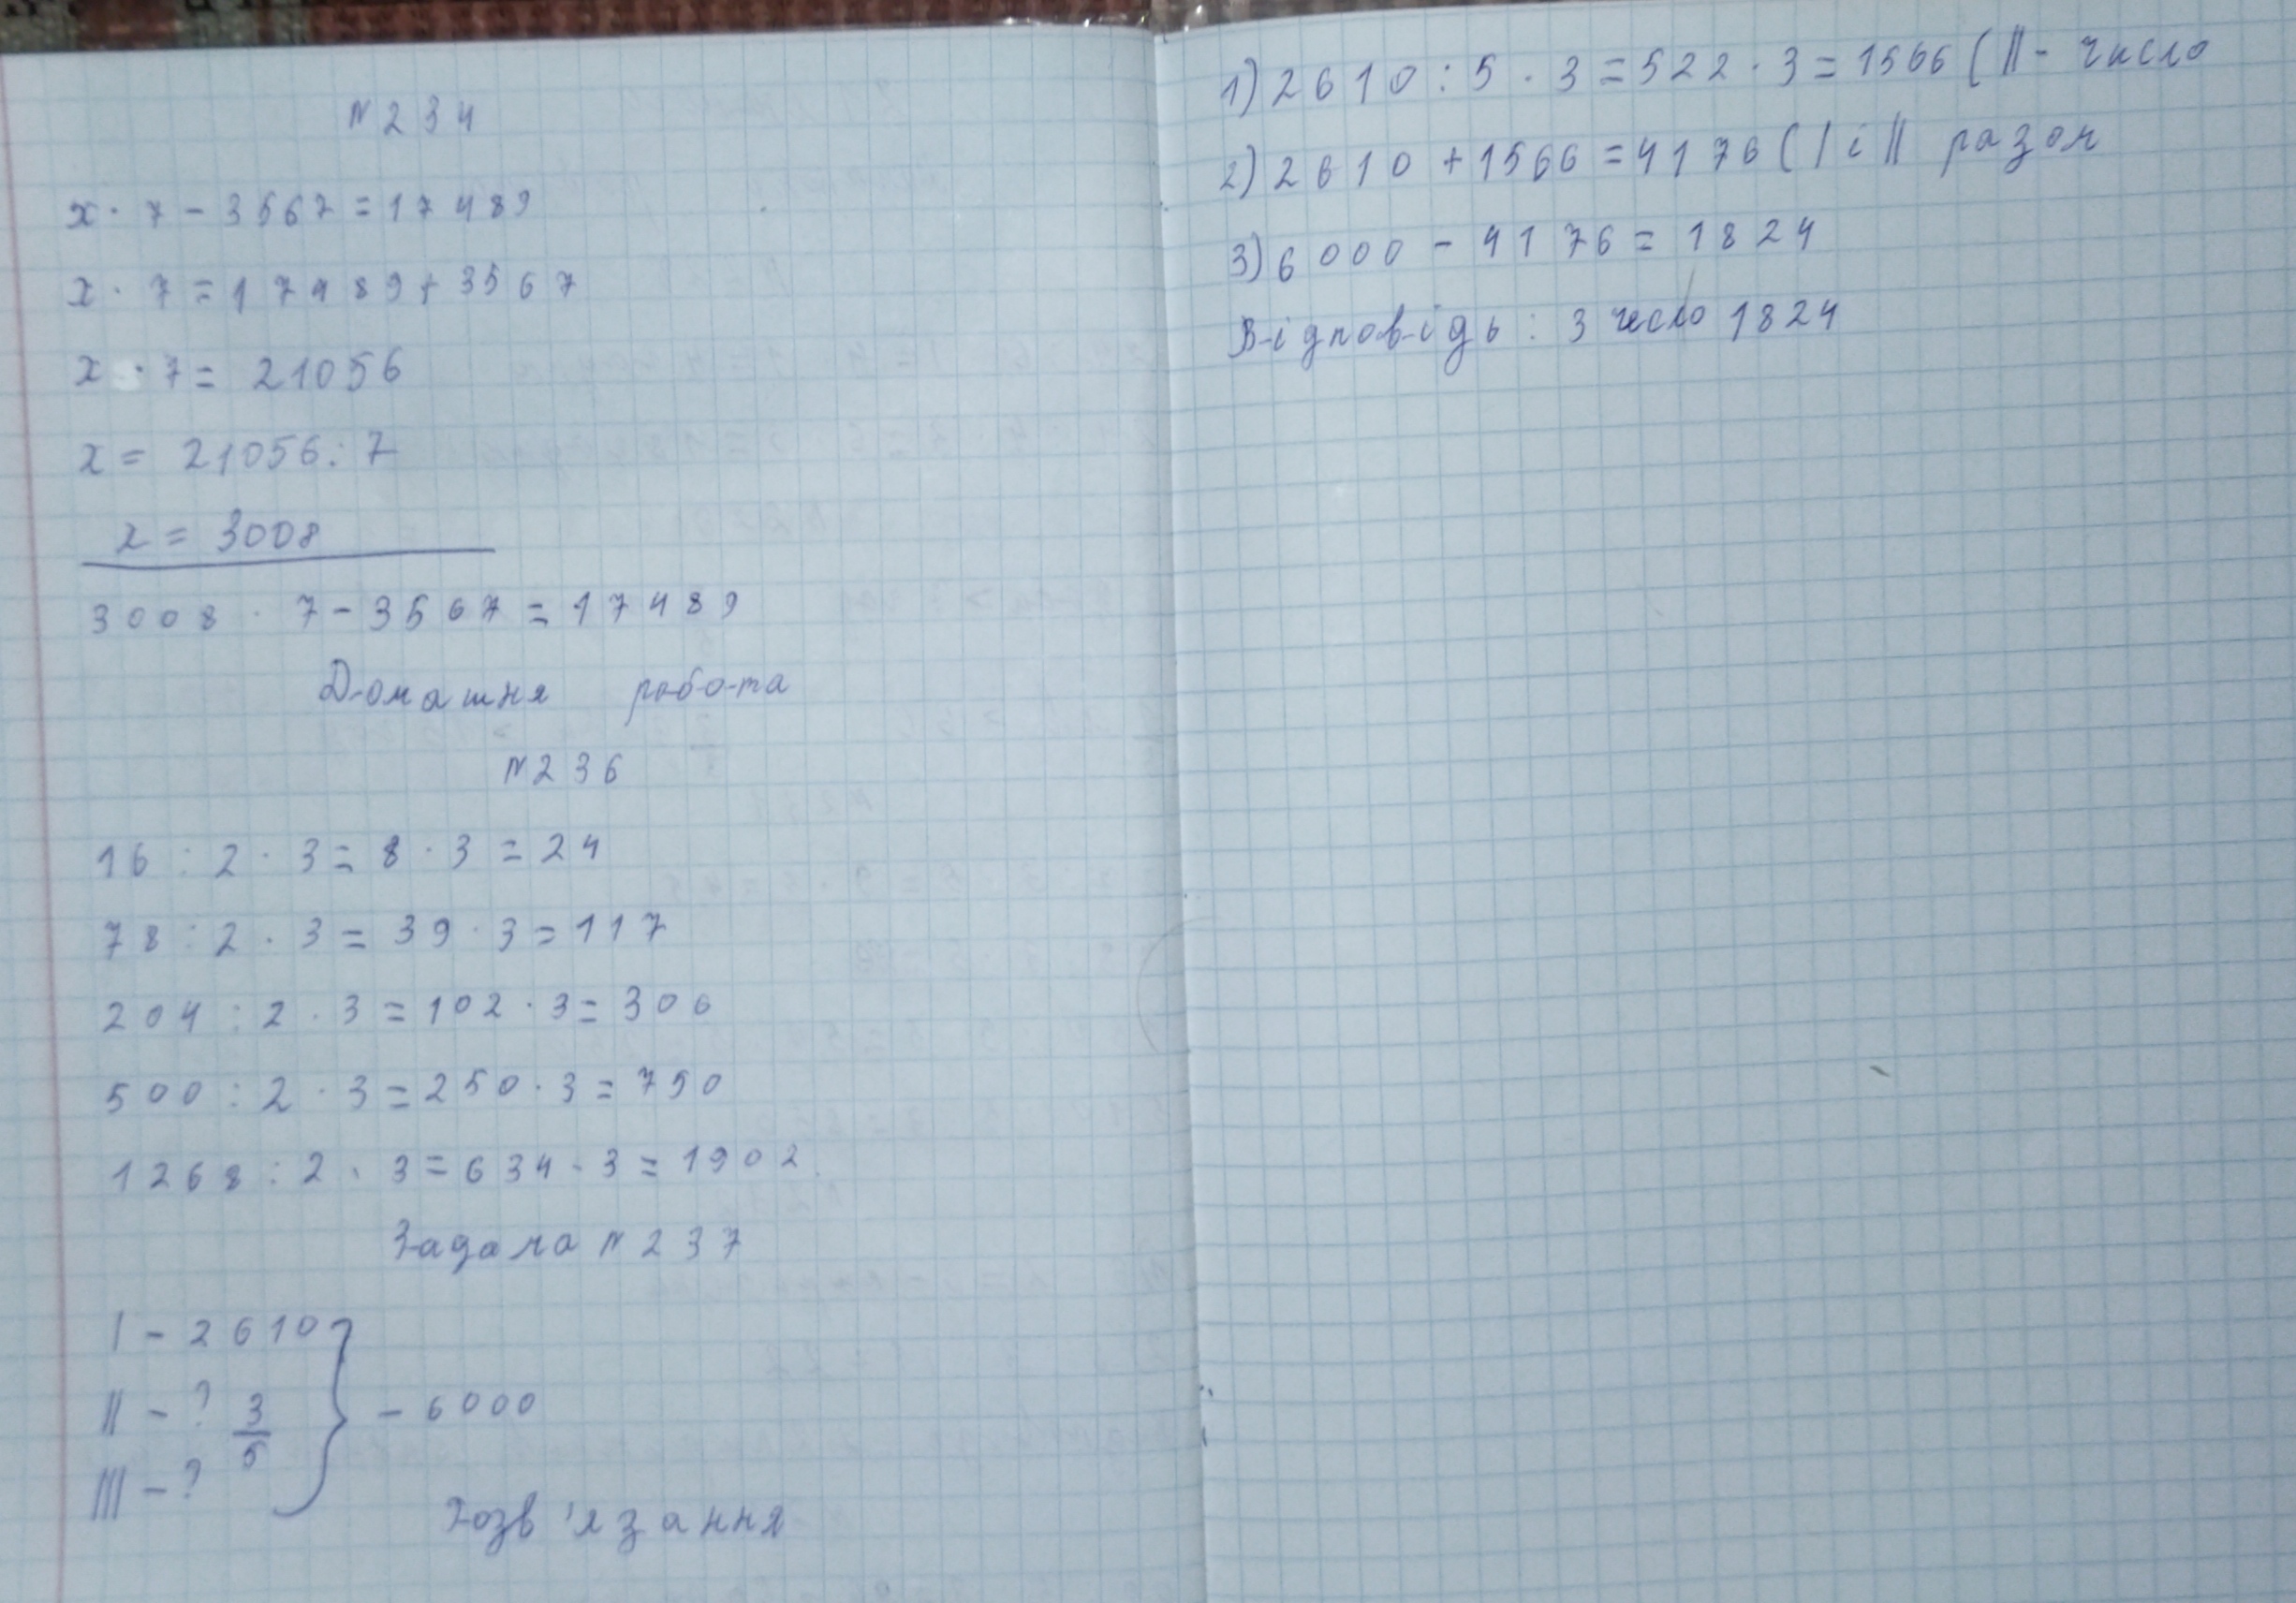 N 234
x · 7 - 3567 = 17489
x · 7 = 17489 + 3567
x · 7 = 21056
x = 21056 : 7
x = 3008
3008 · 7 - 3567 = 17489
Домашня робота
N 236
16 : 2 · 3 = 8 · 3 = 24
78 : 2 · 3 = 39 · 3 = 117
204 : 2 · 3 = 102 · 3 = 306
500 : 2 · 3 = 250 · 3 = 750
1268 : 2 · 3 = 634 · 3 = 1902
Задача N 237
I - 2610
II - ? 3/5 } - 6000
III - ?
Розв'язання
1) 2610 : 5 · 3 = 522 · 3 = 1566 ( II - число
2) 2610 + 1566 = 4176 ( I і II разом
3) 6000 - 4176 = 1824
Відповідь : 3 число 1824